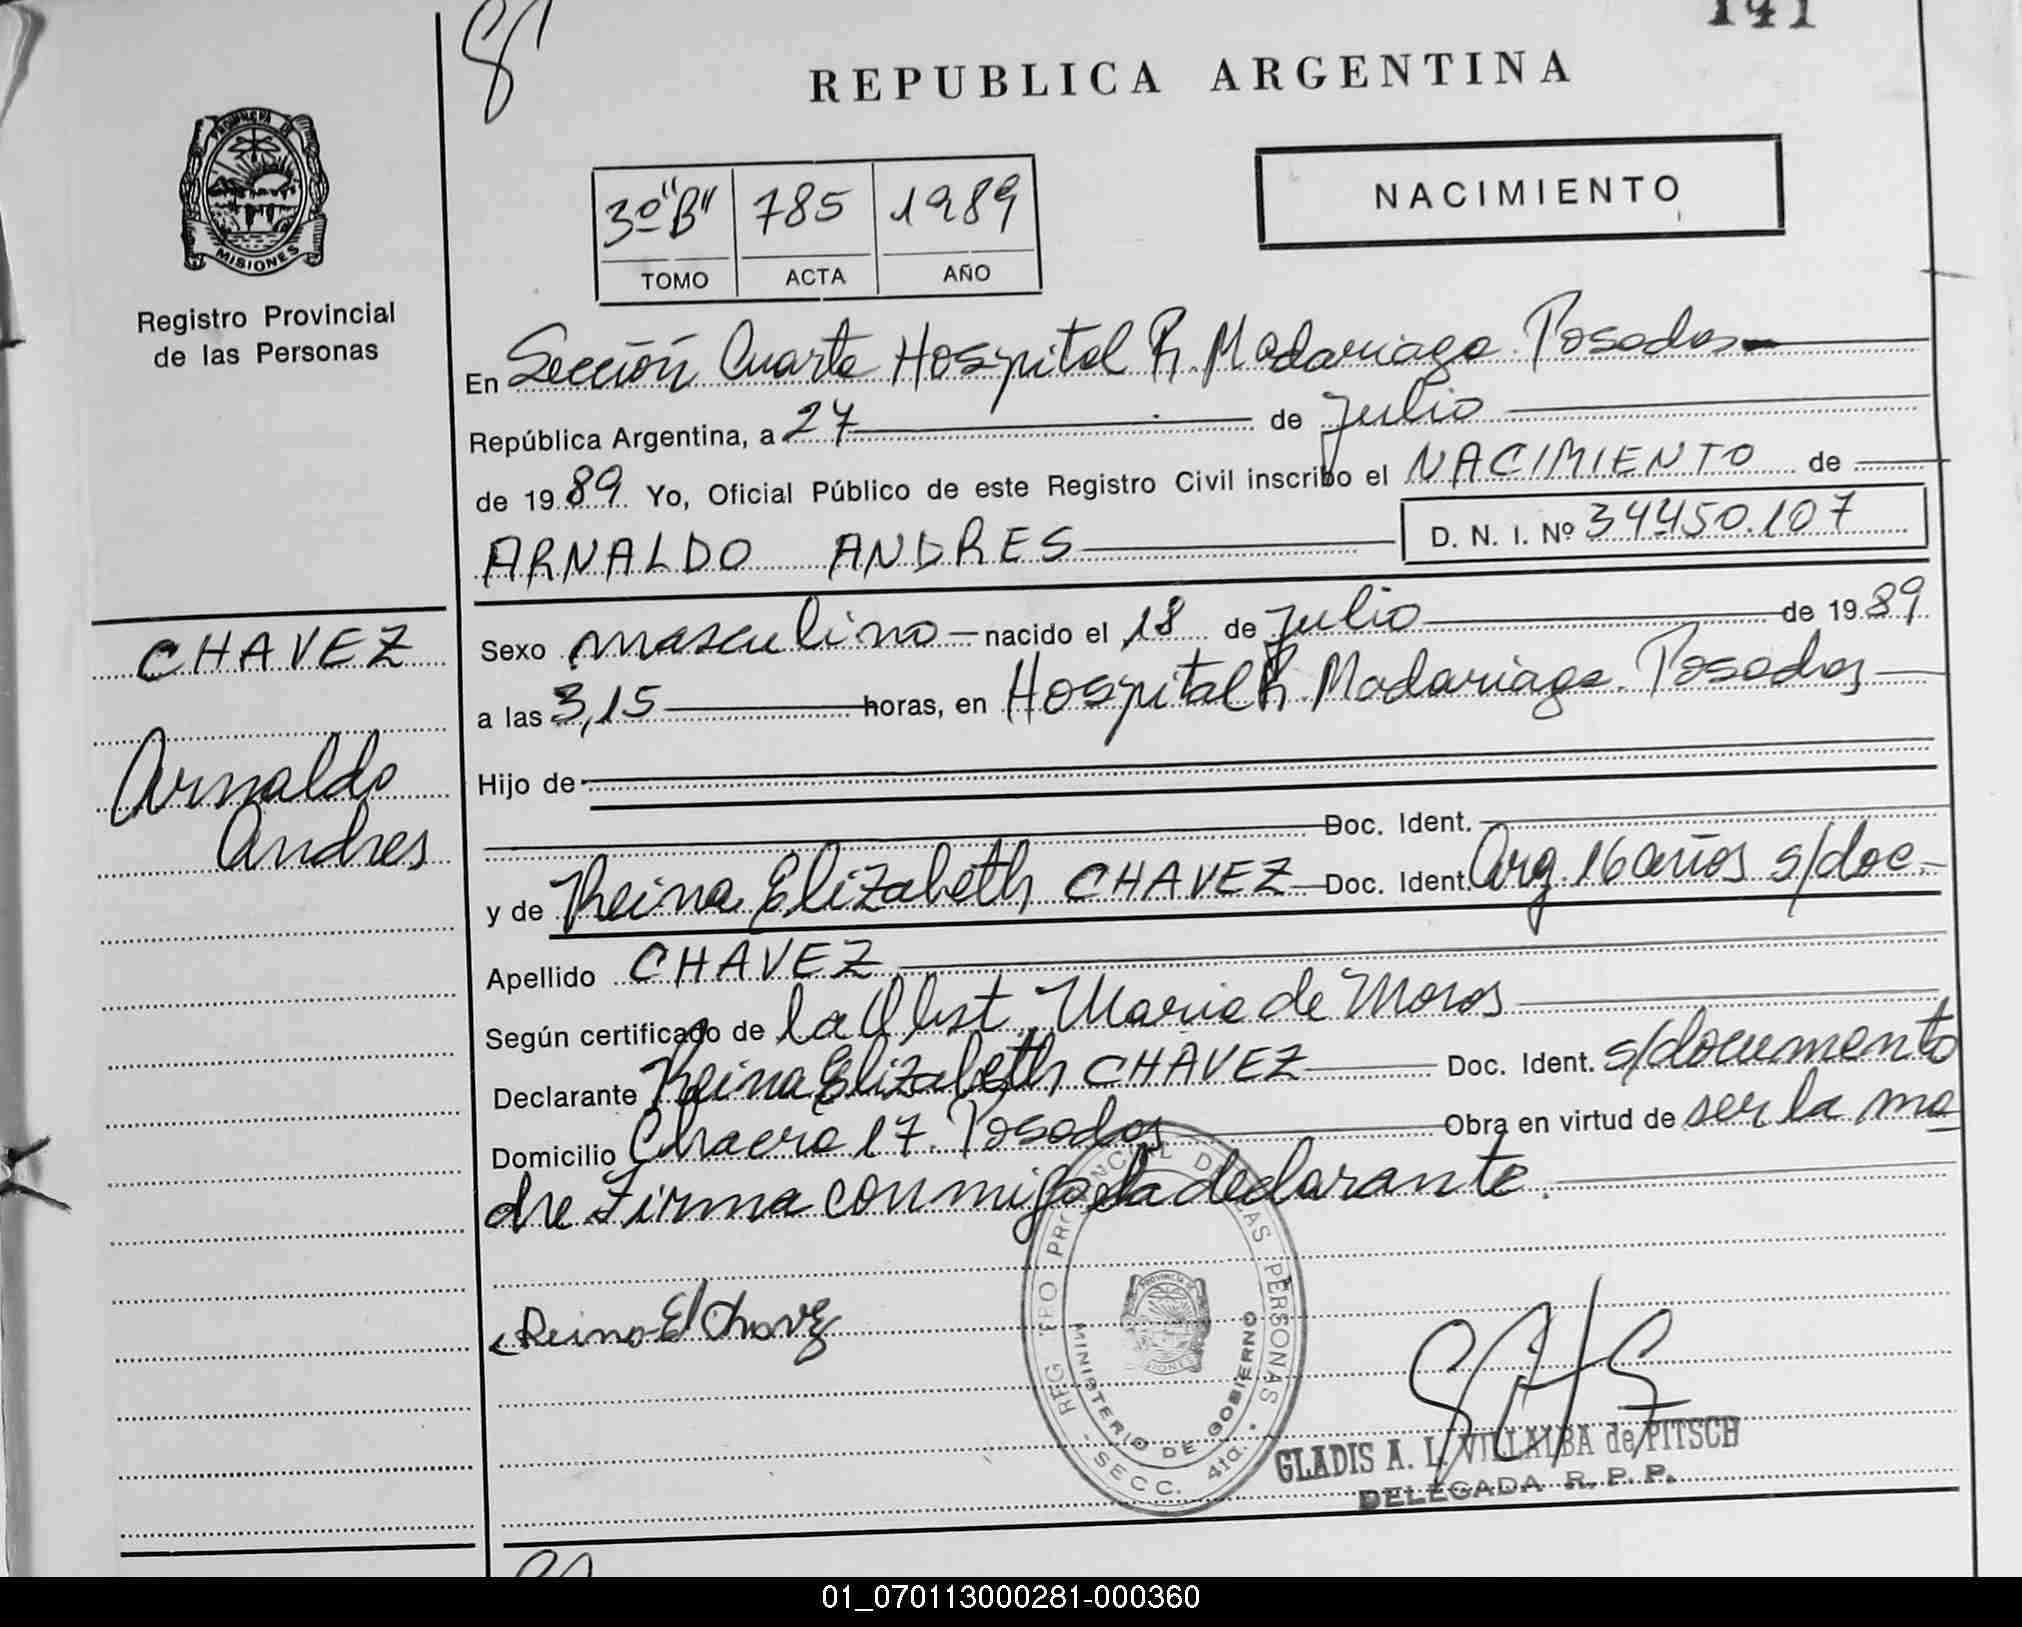 141
REPUBLICA ARGENTINA
NACIMIENTO
3º "B" 785 1989
TOMO ACTA AÑO
PROVINCIA DE
MISIONES
Registro Provincial
de las Personas
En Sección Cuarta Hospital R. Madariaga. Posadas
República Argentina, a 27 de Julio
de 1989. Yo, Oficial Público de este Registro Civil inscribo el NACIMIENTO de
ARNALDO ANDRES D. N. I. Nº 34450.107
CHAVEZ
Arnaldo
Andres
Sexo masculino nacido el 18 de Julio de 1989
a las 3,15 horas, en Hospital R. Madariaga. Posadas
Hijo de
Doc. Ident.
y de Reina Elizabeth CHAVEZ Doc. Ident. Arg. 16 años s/doc.
Apellido CHAVEZ
Según certificado de la Obst. Maria de Moros
Declarante Reina Elizabeth CHAVEZ Doc. Ident. s/documento
Domicilio Chacra 17. Posadas Obra en virtud de ser la ma
dre Firma conmigo la declarante.
Reina El Chavez
REG PRO PROVINCIAL DE LAS PERSONAS
MINISTERIO DE GOBIERNO
- SECC. 4ta. -
GLADIS A. L. VILLALBA de PITSCH
DELEGADA R. P. P.
01_070113000281-000360